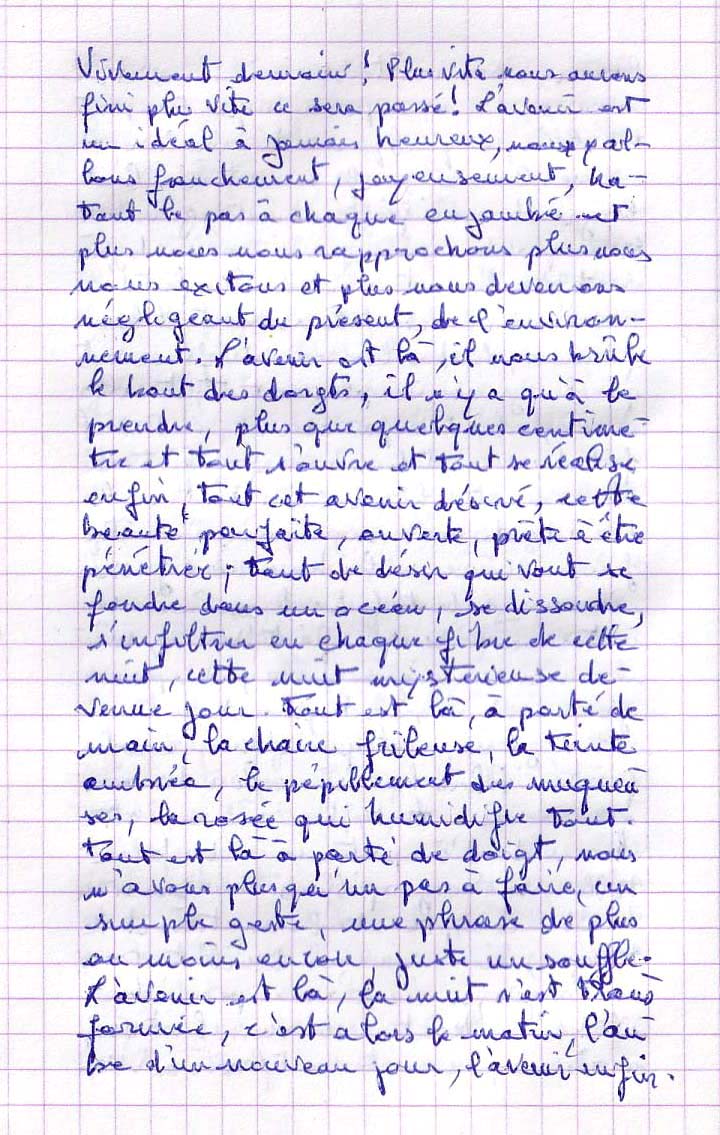 Vivement demain! Plus vite nous aurons
fini plus vite ce sera passé! L'avenir est
un idéal à jamais heureux, nous y al-
lons franchement, joyeusement, ha-
tant le pas à chaque enjambé et
plus nous nous rapprochons plus nous
nous exitons et plus nous devenons
négligeant du présent, de l'environ-
nement. L'avenir est là, il nous brûle
le bout des doigts, il n'y a qu'à le
prendre, plus que quelques centimè-
tre et tout s'ouvre et tout se réalise
enfin, tout cet avenir désiré, cette
beauté parfaite, ouverte, prête à être
pénétrér; tant de désir qui vont se
fondre dans un océan, se dissoudre,
s'infiltrer en chaque fibre de cette
nuit, cette nuit mystérieuse de-
venue jour. Tout est là, à porté de
main, la chaire frileuse, la teinte
ambrée, le pépillement des muqueu
ses, la rosée qui humidifie tout.
Tout est là à porté de doigt, nous
n'avons plus qu'un pas à faire, un
simple geste, une phrase de plus
ou moins encore, juste un souffle.
L'avenir est là, la nuit s'est trans
formée, c'est alors le matin, l'au
be d'un nouveau jour, l'avenir enfin.